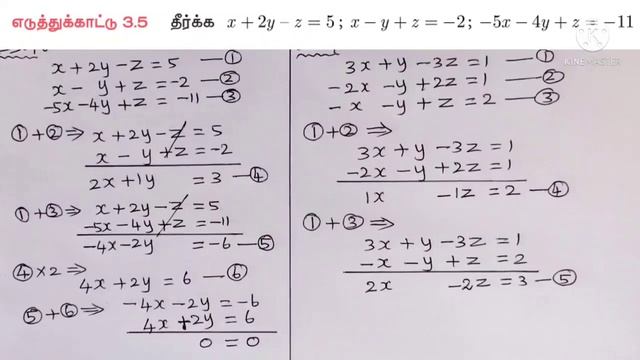 எடுத்துக்காட்டு 3.5 தீர்க்க x + 2y – z = 5 ; x – y + z = –2 ; –5x – 4y + z = –11
KINEMASTER
x + 2y - z = 5 — ①
x - y + z = -2 — ②
-5x - 4y + z = -11 — ③
① + ② ⇒ x + 2y - z = 5
x - y + z = -2
2x + 1y = 3 — ④
① + ③ ⇒ x + 2y - z = 5
-5x - 4y + z = -11
-4x - 2y = -6 — ⑤
④ × 2 ⇒ 4x + 2y = 6 — ⑥
⑤ + ⑥ ⇒ -4x - 2y = -6
4x + 2y = 6
0 = 0
3x + y - 3z = 1 — ①
-2x - y + 2z = 1 — ②
-x - y + z = 2 — ③
① + ② ⇒
3x + y - 3z = 1
-2x - y + 2z = 1
1x - 1z = 2 — ④
① + ③ ⇒
3x + y - 3z = 1
-x - y + z = 2
2x - 2z = 3 — ⑤